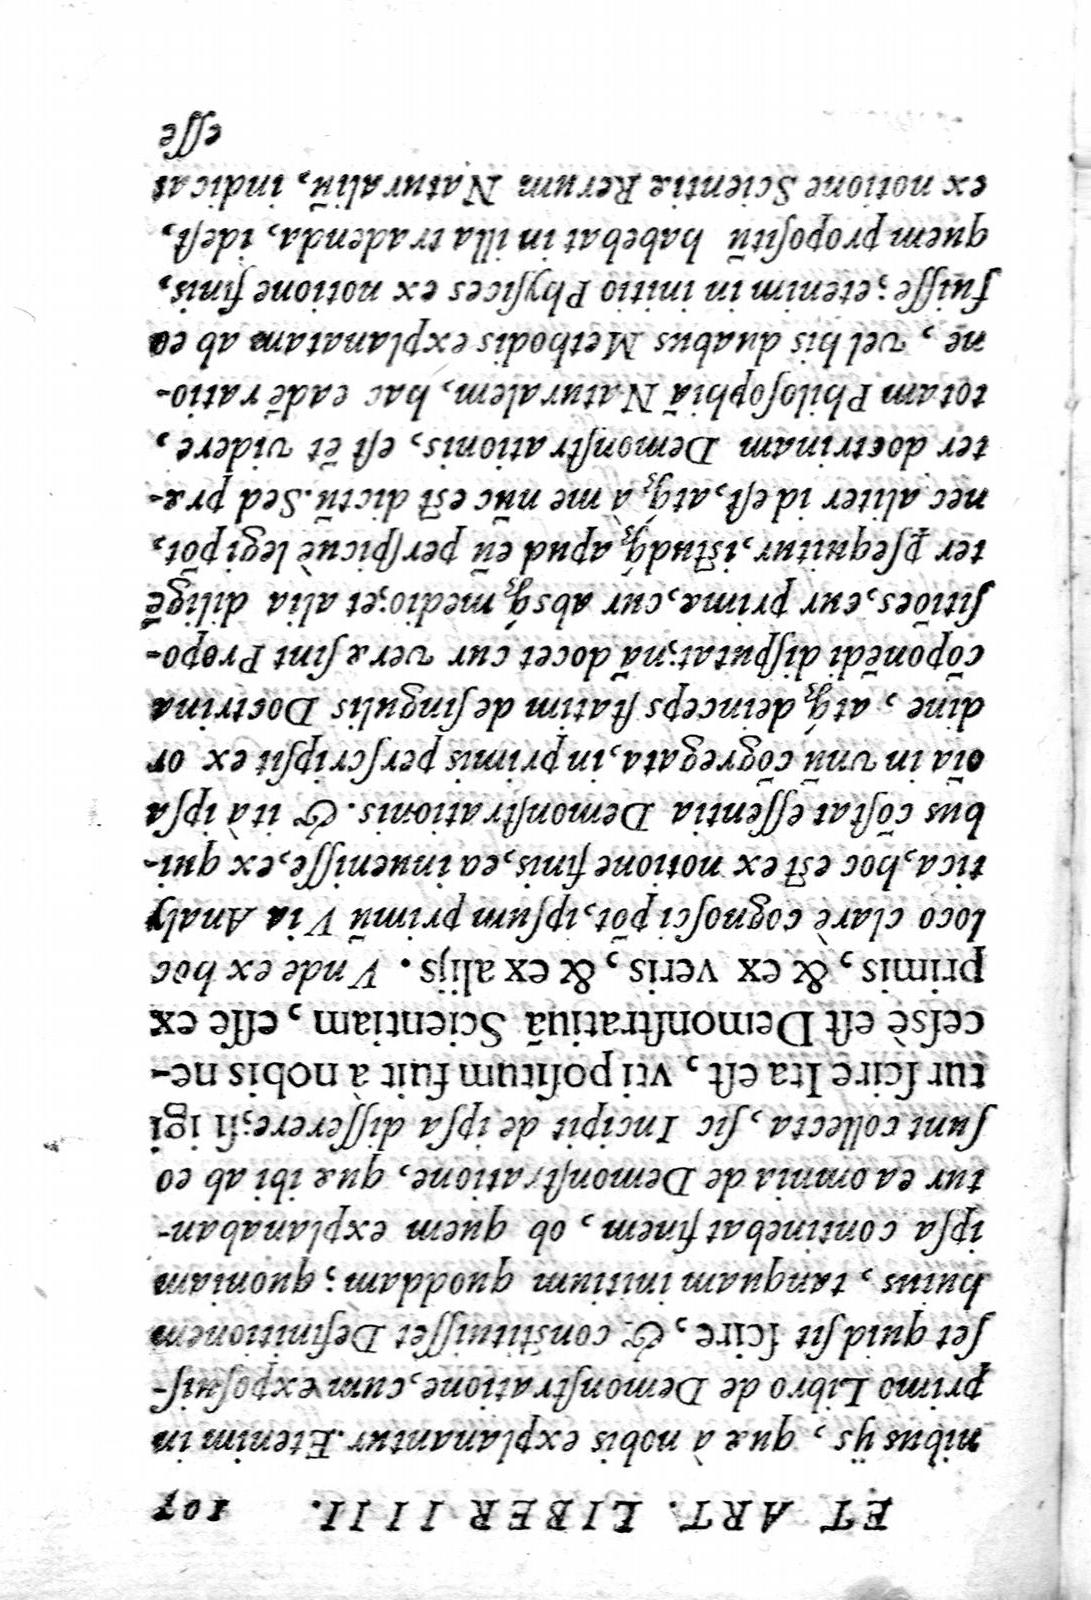 ET ART. LIBER IIII. 107
nibus ijs, quæ à nobis explanantur. Etenim in
primo Libro de Demonſtratione, cum expoſuiſ-
ſet quid ſit ſcire, & conſtituiſſet Definitionem
huius, tanquam initium quoddam; quoniam
ipſa continebat finem, ob quem explanaban-
tur ea omnia de Demonſtratione, quæ ibi ab eo
ſunt collecta, ſic Incipit de ipſa diſſerere; ſi igi
tur ſcire Ita eſt, vti poſitum fuit à nobis ne-
ceſsè eſt Demonſtratiuã Scientiam, eſſe ex
primis, & ex veris, & ex alijs. Vnde ex hoc
loco clarè cognoſci põt, ipſum primũ Via Analy
tica, hoc eſt ex notione finis, ea inueniſſe, ex qui-
bus cõſtat eſſentia Demonſtrationis. & ità ipſa
oĩa in vnũ cõgregata, in primis perſcripſit ex or
dine, atq́; deinceps ſtatim de ſingulis Doctrina
cõponẽdi diſputat; nã docet cur veræ ſint Propo-
ſitiões, cur primæ, cur absq́; medio; et alia diligẽ
ter ꝑſequitur, iſtudq́; apud eũ perſpicuè legi põt,
nec aliter id eſt, atq́; à me nũc eſt dictũ. Sed præ-
ter doctrinam Demonſtrationis, eſt ẽt videre,
totam Philoſophiã Naturalem, hac eadẽ ratio-
ne, vel his duabus Methodis explanatam ab eo
fuiſſe; etenim in initio Phyſices ex notione finis,
quem propoſitũ habebat in illa tradenda, ideſt,
ex notione Scientiæ Rerum Naturaliũ, indicat
eſſe